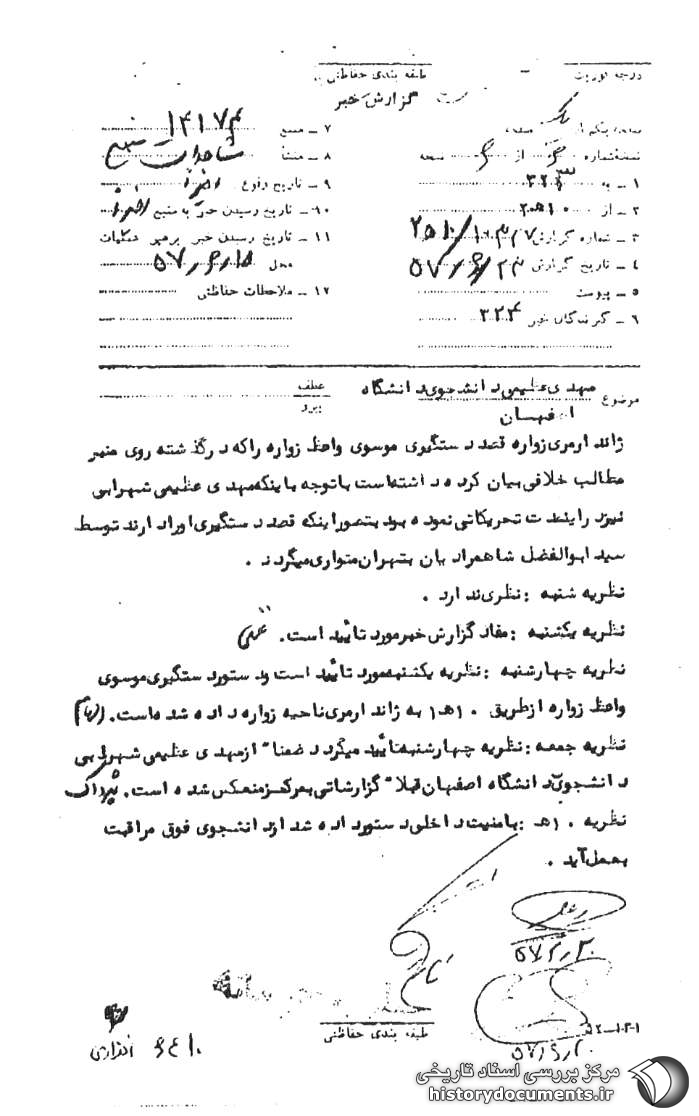 درجه فوریت
طبقه بندی حفاظتی
گزارش خبر
نسخه شماره از نسخه
۱ ـ به ۳۲۳
۲ ـ از
۳ ـ شماره گزارش
۴ ـ تاریخ گزارش
۵ ـ پیوست
۶ ـ گیرندگان خبر ۳۲۴
۷ ـ منبع ۱۴۱۷۳
۸ ـ منشأ
۹ ـ تاریخ وقوع اخیراً
۱۰ ـ تاریخ رسیدن خبر به منبع اخیراً
۱۱ ـ تاریخ رسیدن خبر برهبر عملیات
محل
۱۲ ـ ملاحظات حفاظتی
موضوع مهدی عظیمی دانشجوی دانشگاه
اصفهان
عطف
پیرو
ژاندارمری زواره قصد دستگیری موسوی واعظ زواره را که در گذشته روی منبر
مطالب خلافی بیان کرده داشته است باتوجه باینکه مهدی عظیمی شهرابی
نیز در اینمدت تحریکاتی نموده بود بتصور اینکه قصد دستگیری او را دارند توسط
سید ابوالفضل شاهمرادیان بتهران متواری میگردد .
نظریه شنبه : نظری ندارد .
نظریه یکشنبه : مفاد گزارش خبر مورد تأیید است .
نظریه چهارشنبه : نظریه یکشنبه مورد تأیید است و دستور دستگیری موسوی
واعظ زواره ازطریق ۱۰هـ۱ به ژاندارمری ناحیه زواره داده شده است .
نظریه جمعه : نظریه چهارشنبه تأیید میگردد ضمنا" از مهدی عظیمی شهرابی
دانشجوی دانشگاه اصفهان قبلا" گزارشاتی بمرکز منعکس شده است .
نظریه ۱۰هـ : بامنیت داخلی دستور داده شد از دانشجوی فوق مراقبت
بعمل آید .
طبقه بندی حفاظتی
مرکز بررسی اسناد تاریخی
historydocuments.ir